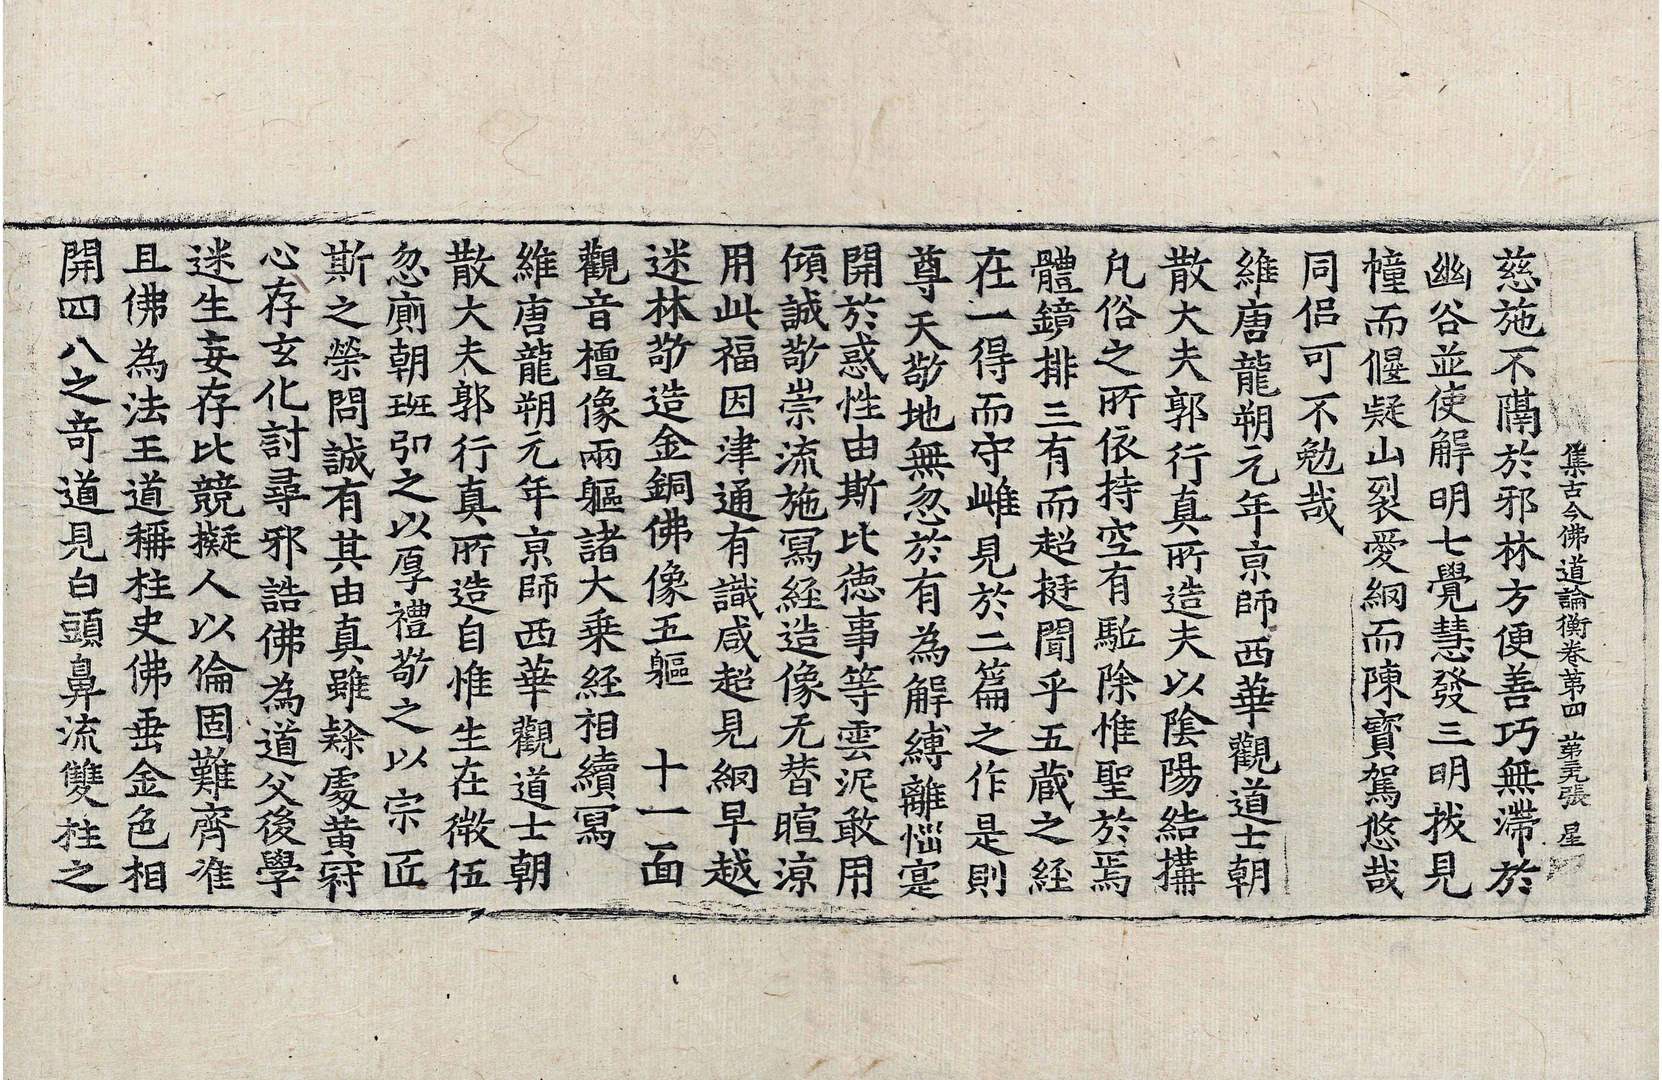 集古今佛道論衡卷苐四 苐三九張 星
慈施不隔於邪林方便善巧無滯於
幽谷並使解明七覺慧發三明拔見
幢而偃疑山裂愛網而陳寶駕悠哉
同侶可不勉哉
維唐龍朔元年京師西華觀道士朝
散大夫郭行真所造夫以陰陽結搆
凡俗之所依持空有駈除惟聖於焉
體鏡排三有而超挺聞乎五蔵之經
在一得而守雌見於二篇之作是則
尊天敬地無忽於有為解縛離惱寔
開於惑性由斯比徳事等雲泥敢用
傾誠敬崇流施寫經造像无替暄涼
用此福因津通有識咸超見網早越
迷林敬造金銅佛像五軀 十一面
觀音檀像兩軀諸大乗經相續寫
維唐龍朔元年京師西華觀道士朝
散大夫郭行真所造自惟生在微伍
忽廁朝班引之以厚禮敬之以宗匠
斯之榮問誠有其由真雖緣處黃冠
心存玄化討尋邪誥佛為道父後學
迷生妄存比競擬人以倫固難齊准
且佛為法王道稱柱史佛垂金色相
開四八之奇道見白頭鼻流雙柱之